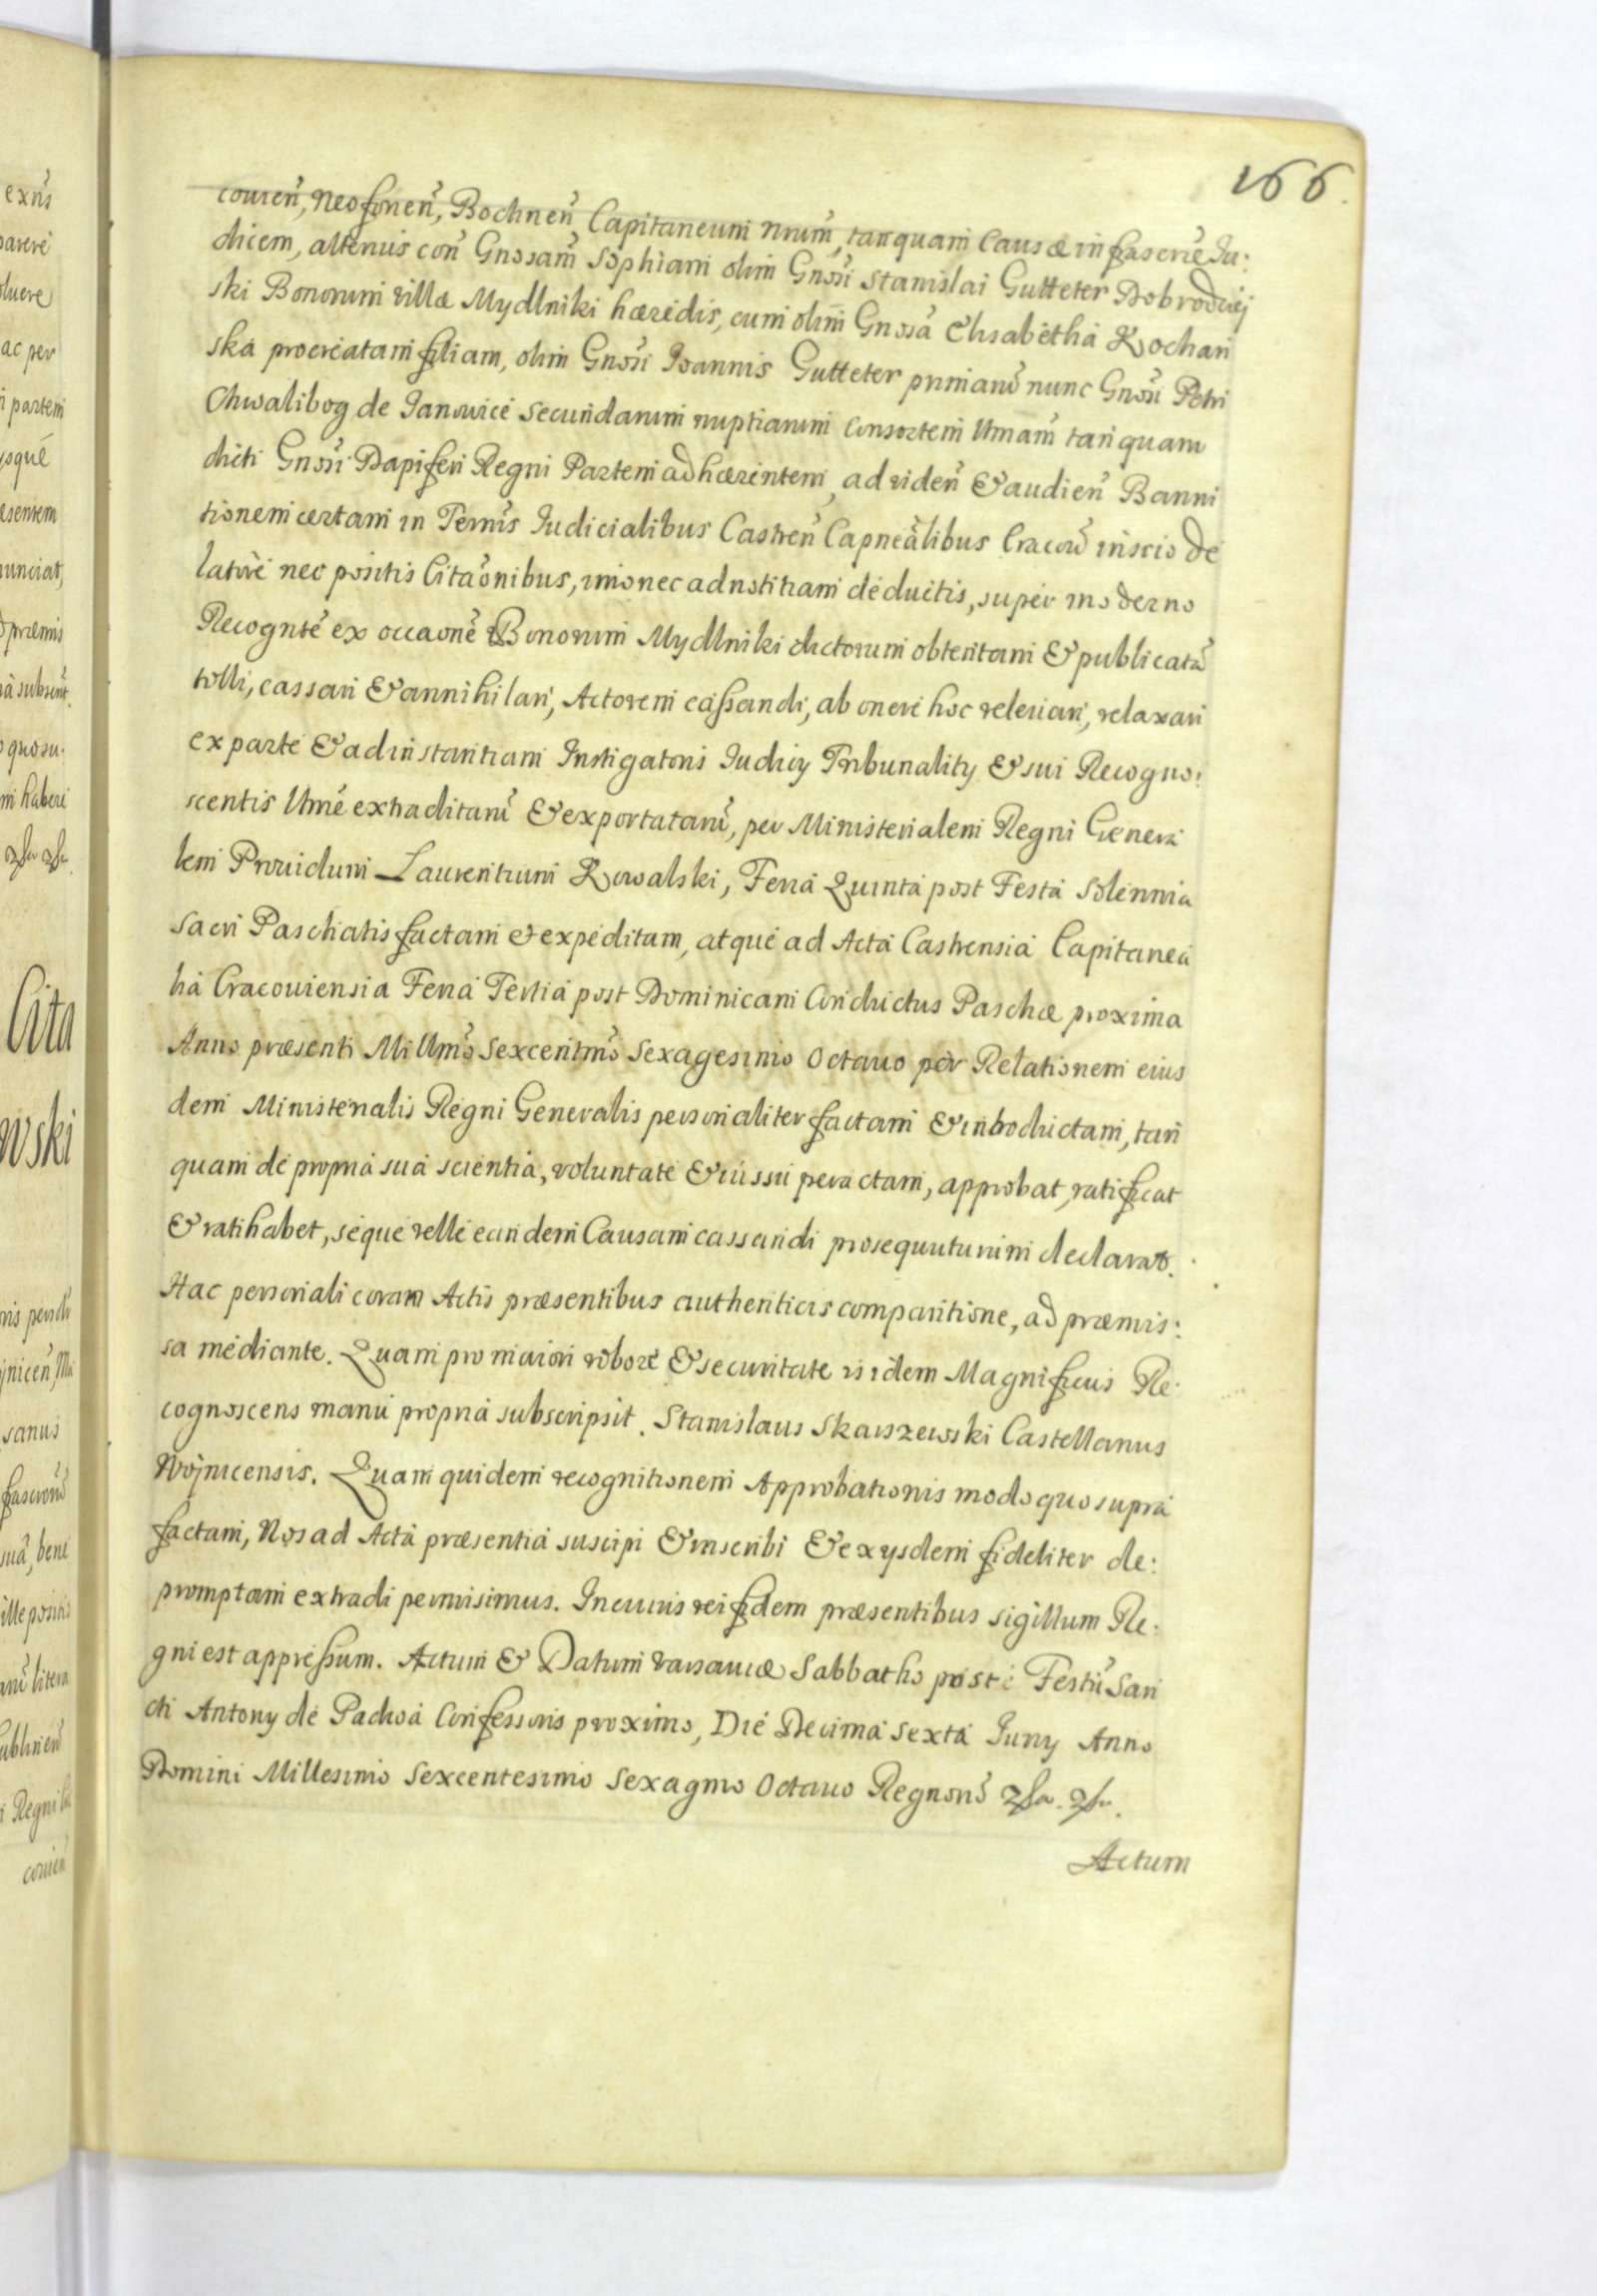 166.
couien̄, Neoforien̄, Bochnen̄, Capitaneum Nrum̄, tanquam Causæ infrascrӗ Iu:
dicem, alterius con̄ Gnosam̄ Sophiam olim Gnosi Stanislai Gutteter Dobrodziej
ski Bonorum villæ Mydlniki hæredis, cum olim Gnosa Elisabetha Kochan
ska procreatam filiam, olim Gnosi Joannis Gutteter primarū nunc Gnosi Petri
Chwalibog de Janowice secundarum nuptiarum Consortem Vtriam tanquam
dicti Gnosi Dapiferi Regni Partem adhærentem, ad viden̄ & audien̄ Banni
tionem certam in Termis Iudicialibus Castren̄ Capnealibus Cracou inscio de
latore nec positis Citaonibus, imo nec ad notitiam deductis, super moderno
Recognte ex occaone Bonorum Mydlniki dictorum obtentam & publicatā
tolli, cassari & annihilari, Actorem cassandi, ab onere hoc releuari, relaxari
ex parte & ad instantiam Instigatoris Iudicy Tribunality & sui Recogno:
scentis Vtrie extraditam̄ & exportatam̄, per Ministerialem Regni Genera
lem Prouidum Laurentium Kowalski, Feria Quinta post Festa Solennia
Sacri Paschatis factam et expeditam, atque ad Acta Castrensia Capitanea
lia Cracouiensia Feria Tertia post Dominicam Conductus Paschæ proxima
Anno præsenti Millmo Sexcentmo Sexagesimo Octauo per Relationem eius
dem Ministerialis Regni Generalis personaliter factam & introductam, tan
quam de propria sua scientia, voluntate & iussu peractam, approbat, ratificat
& ratihabet, seque velle eandem Causam cassandi prosequuturum declarat.
Hac personali coram Actis præsentibus authenticis comparitione, ad præmis:
sa mediante. Quam pro maiori robore & securitate isidem Magnificus Re:
cognoscens manu propria subscripsit. Stanislaus Skarszewski Castellanus
Woynicensis. Quam quidem recognitionem Approbationis modo quo supra
factam, Nos ad Acta præsentia suscipi & inscribi & ex ysdem fideliter de:
promptam extradi permisimus. In cuius rei fidem præsentibus sigillum Re:
gni est appressum. Actum & Datum Varsauiæ Sabbatho post Festū San
cti Antony de Padua Confessoris proximo, Die Decima Sexta Iuny Anno
Domini Millesimo Sexcentesimo Sexagmo Octauo Regnorū
Actum
Cita
wski